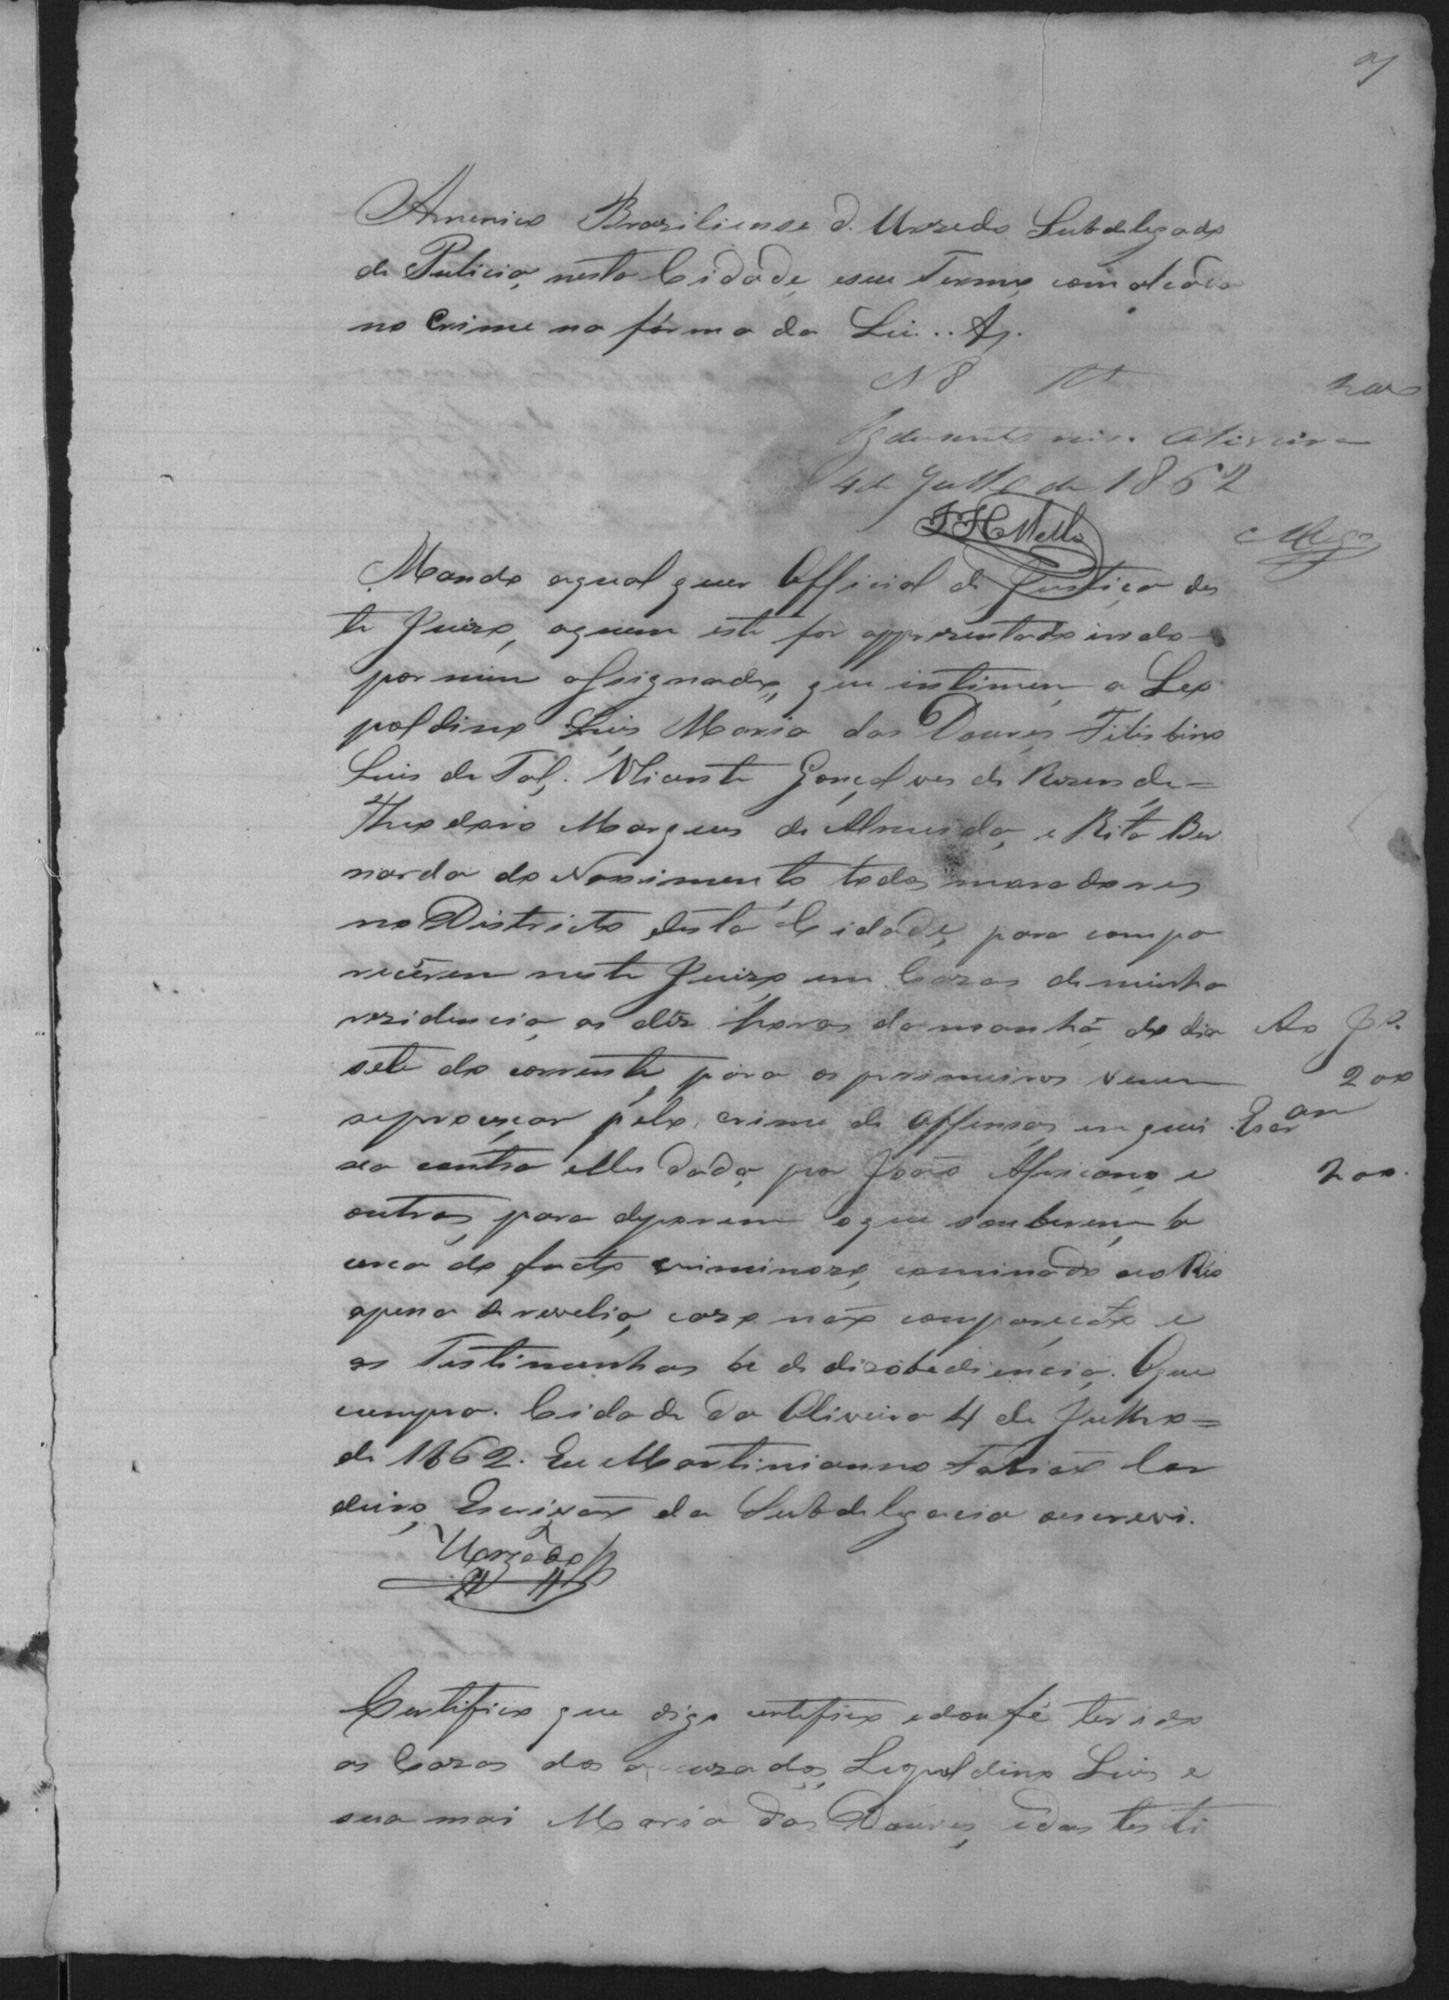 Americo Braziliense d. Urzedo Subdelegado
de Policia, nesta Cidade, e seu Termo, com alçada
no Crime na fórma da Lei.. &.
N 8 200
Oliveira
4 de Julho de 1862
JHMello
Mando aqual quer Official de Justiça des
te Juizo, aquem este for appresentado indo
por mim assignado, que intimem a Leo
poldino Luis Maria das Doures Filisbino
Luis de Tal, Vicente Gonçalves de Rezende=
Theodoro Marques de Almeida, e Rita Ber
narda do Nascimento todos moradores
no Districto desta Cidade, para compa
recerem neste Juizo em Cazas de minha
rezidencia, as dez horas da manhã do dia
sete do corrente, para os primeiros verem
se processar pelo crime de offensas, em quei
xa contra elles dada, por João Africano, e
outros, para deporem o que souberem, a
cerca do facto criminozo, cominado aos Réo
apena de revelia, cazo não compareção e
as Testimunhas a de dizobediencia. O que
cumpra. Cidade da Oliveira 4 de Julho=
de 1862. Eu Martinianno Cor
deiro, Escrivão da Subdelegacia o escrevi.
Urzedo
Ao J.º
200
Escr.am
200.
Certifico que digo certifico e dou fé ter ido
as Cazas dos acuzados, Leopoldino Luis e
sua mai Maria das Doures, e das testi